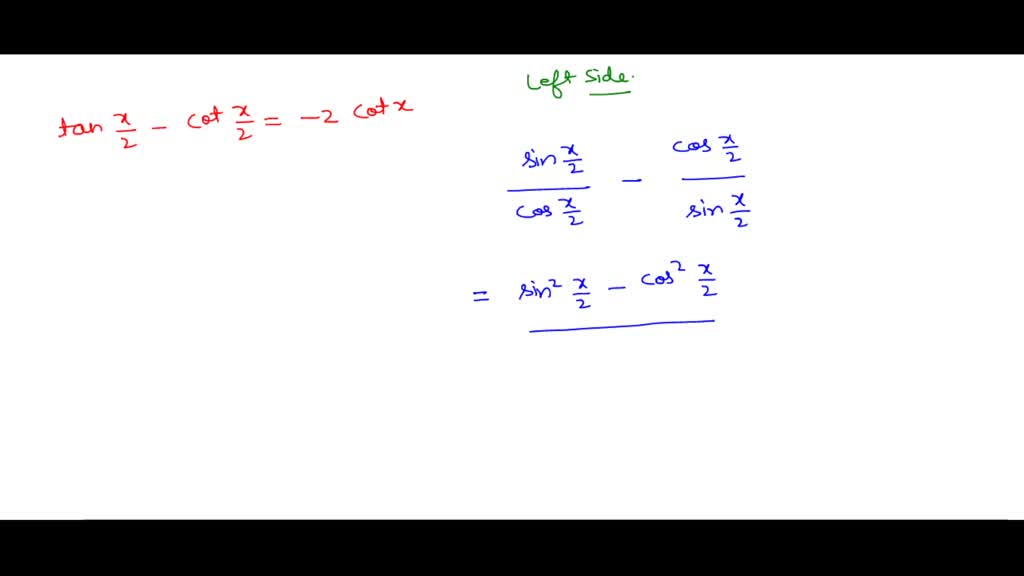 tan x/2 - cot x/2 = -2 cot x
Left side.
sin x/2 / cos x/2 - cos x/2 / sin x/2
= sin² x/2 - cos² x/2